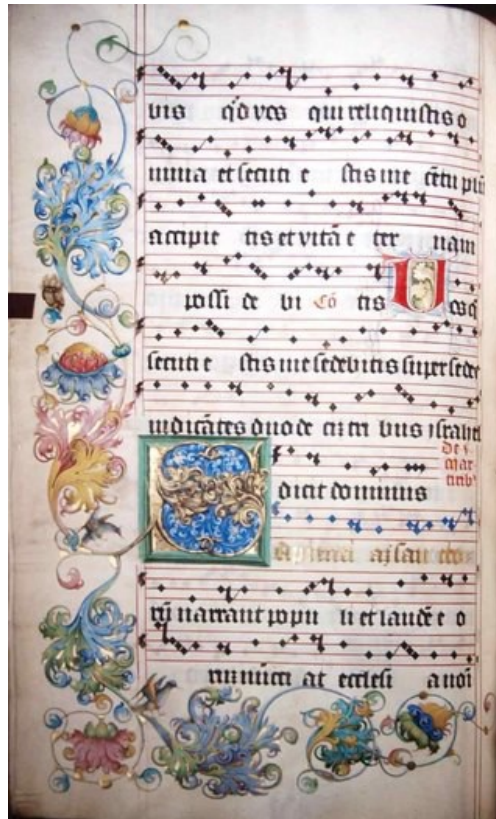 vis q̄d vos qui reliquistis o
mnia et secuti e stis me cētū plū
accipie tis et vitā e ter nam
possi de bi Cō tis U osq̄
secuti e stis me sedebitis super sedes
iudicātes duodecim tri bus israhel
De
mar
tirib
S dicit dominus
Sapientiā sancto
rū narrant popu li et laudē e o
rum nūcci at ecclesi a noī